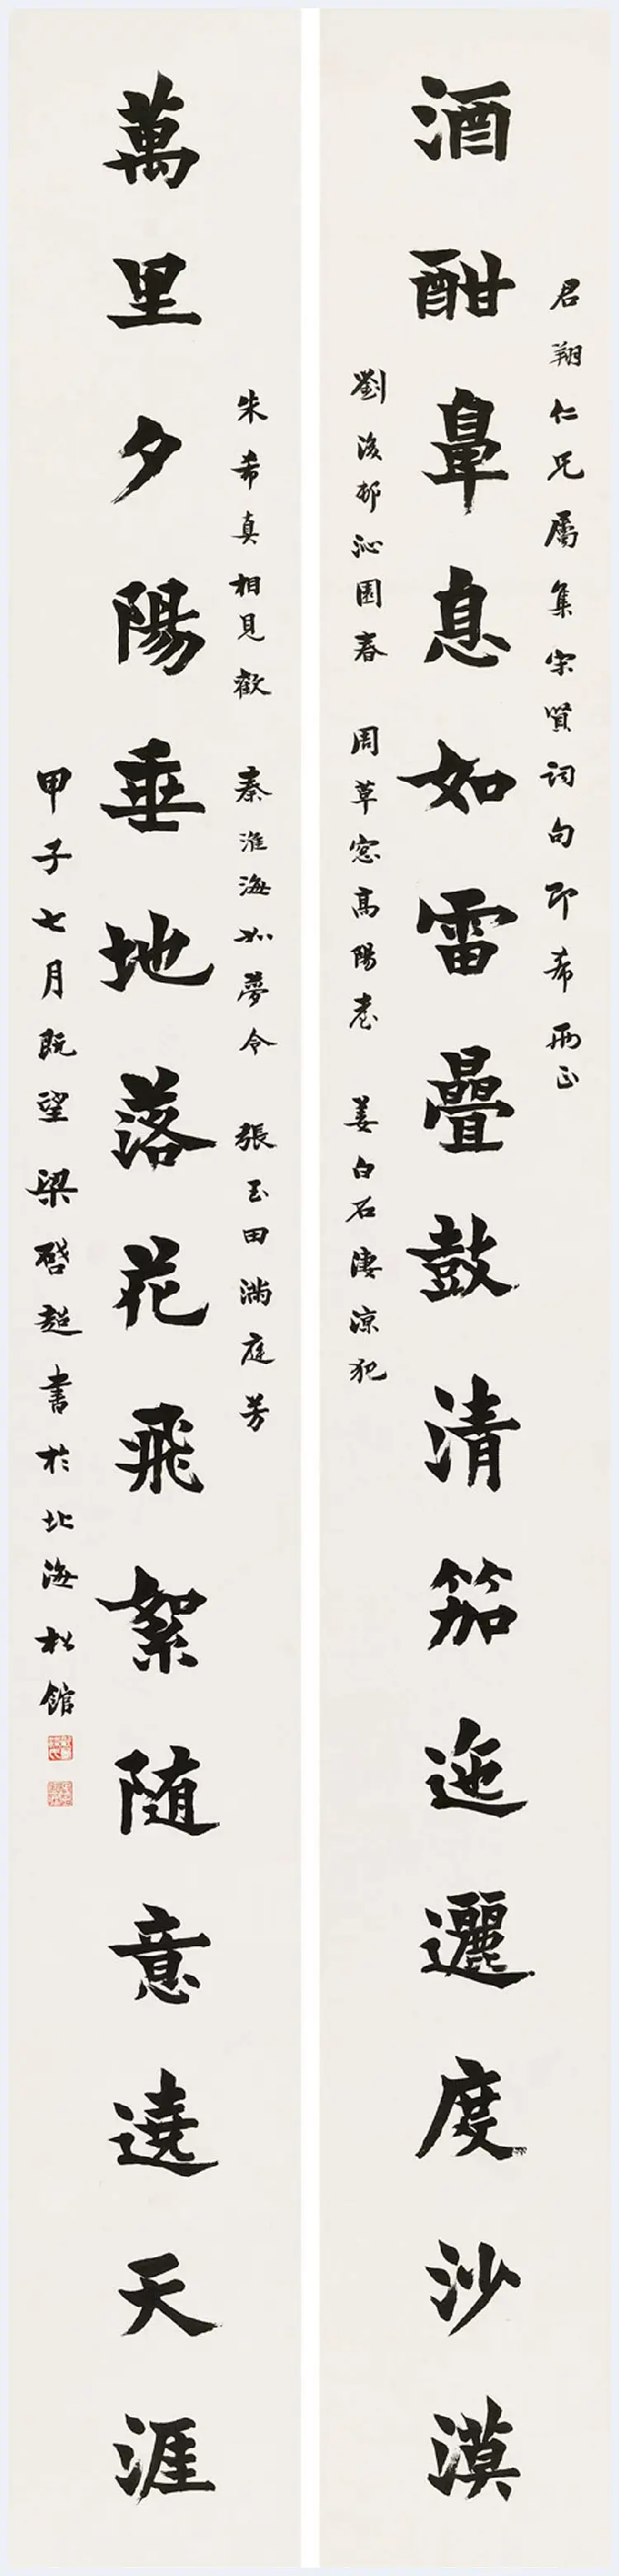 君翔仁兄屬集宋賢詞句即希兩正
酒酣鼻息如雷疊鼓清笳迤邐度沙漠
劉後邨沁園春 周草窓高陽臺 姜白石淒涼犯
朱希真相見歡 秦淮海如夢令 張玉田滿庭芳
萬里夕陽垂地落花飛絮随意遶天涯
甲子七月既望梁啓超書於北海松館